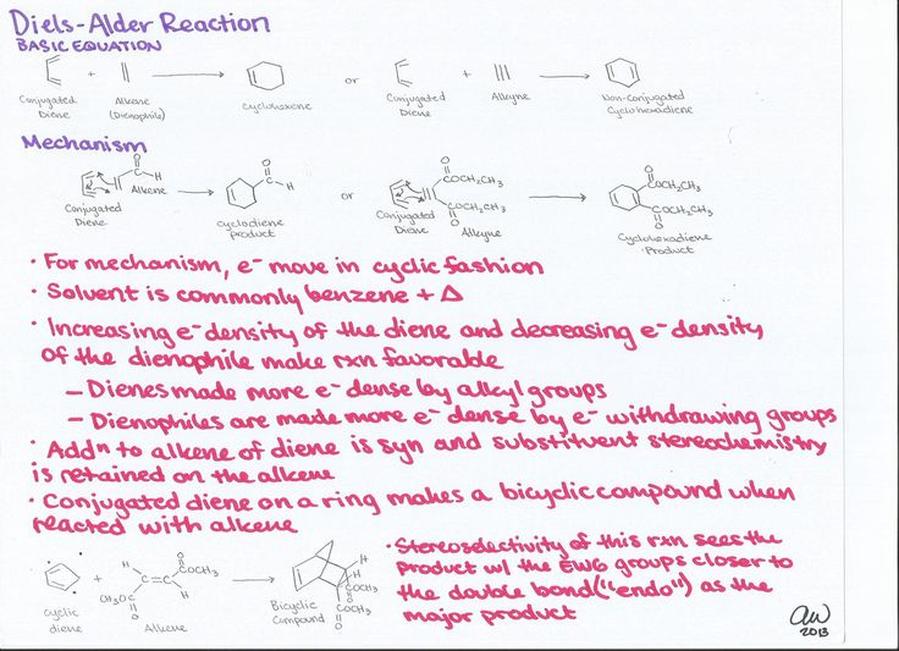 Diels-Alder Reaction
BASIC EQUATION
+ → or + →
Conjugated Diene Alkene (Dienophile) cyclohexene Conjugated Diene Alkyne Non-Conjugated Cyclohexadiene
Mechanism
O C H Alkene → O C H or O COCH₂CH₃ COCH₂CH₃ O → O COCH₂CH₃ COCH₂CH₃ O
Conjugated Diene cyclodiene product Conjugated Diene Alkyne Cyclohexadiene Product
· For mechanism, e⁻ move in cyclic fashion
· Solvent is commonly benzene + Δ
· Increasing e⁻ density of the diene and decreasing e⁻ density
of the dienophile make rxn favorable
– Dienes made more e⁻ dense by alkyl groups
– Dienophiles are made more e⁻ dense by e⁻ withdrawing groups
· Addⁿ to alkene of diene is syn and substituent stereochemistry
is retained on the alkene
· Conjugated diene on a ring makes a bicyclic compound when
reacted with alkene
+ H O COCH₃ C=C CH₃OC O H → H H COCH₃ COCH₃ O
cyclic diene Alkene Bicyclic Compound
· Stereoselectivity of this rxn sees the
product w/ the EWG groups closer to
the double bond ("endo") as the
major product
aw
2013